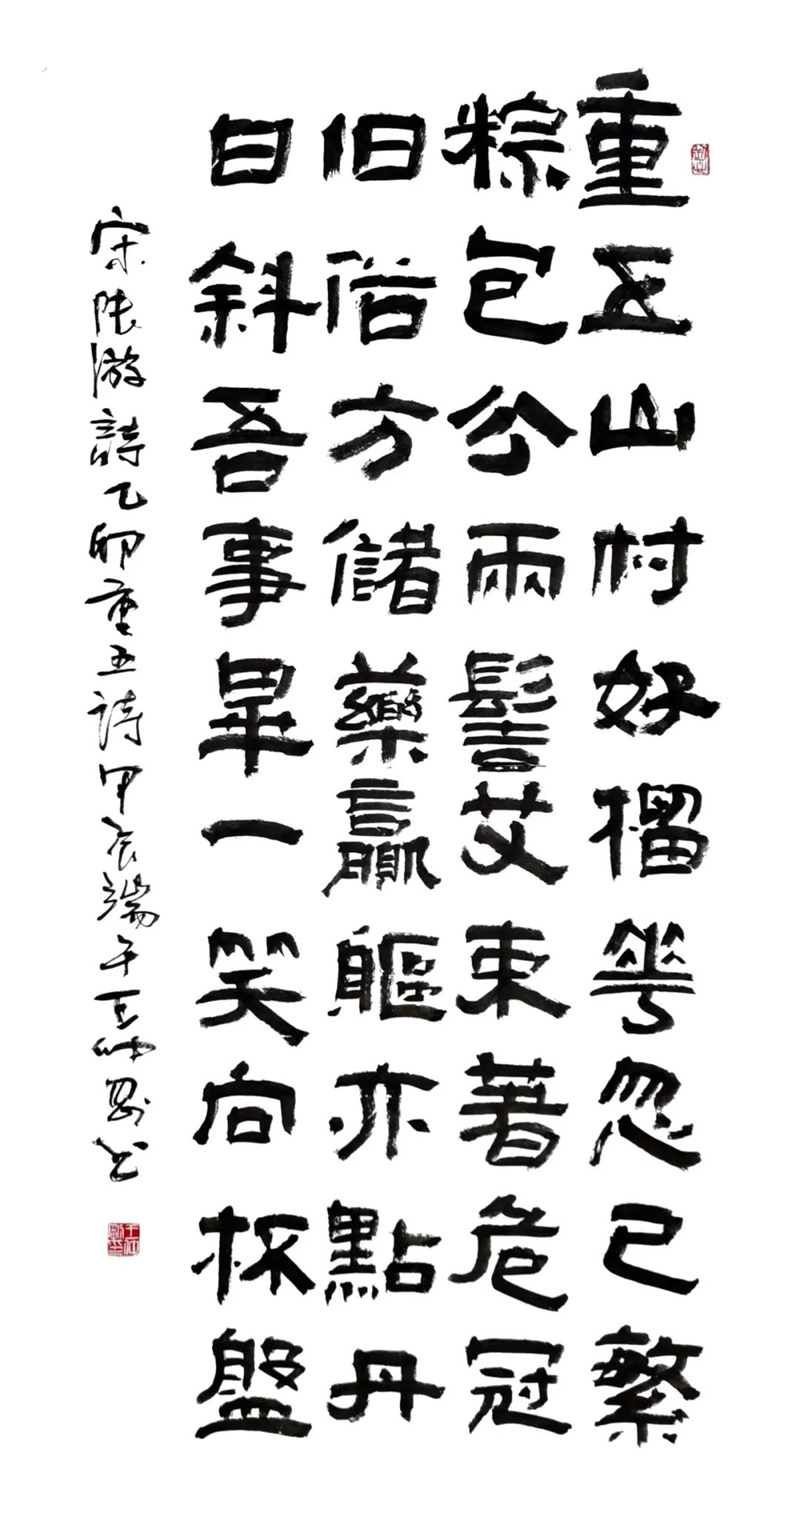 重五山村好榴花忽已繁
粽包分兩髻艾束著危冠
旧俗方儲藥羸軀亦點丹
日斜吾事畢一笑向杯盤
宋陸游詩乙卯重五詩甲辰端午